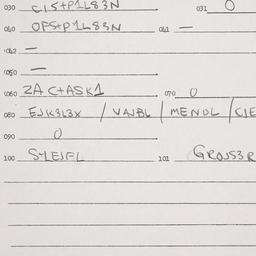 030 CIS+P1L83N 031 0
040 OPS+P1L83N 041 —
042 —
050 —
060 ZA C+ASK1 070 0
080 EJK3L3X / VAJBL / MENDL / CIE
090 0
100 GROUS3R